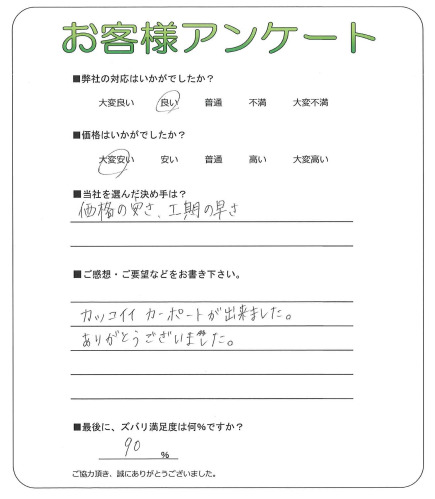 お客様アンケート
■弊社の対応はいかがでしたか？
大変良い 良い 普通 不満 大変不満
■価格はいかがでしたか？
大変安い 安い 普通 高い 大変高い
■当社を選んだ決め手は？
価格の安さ、工期の早さ
■ご感想・ご要望などをお書き下さい。
カッコイイ カーポートが出来ました。
ありがとうございました。
■最後に、ズバリ満足度は何%ですか？
90 %
ご協力頂き、誠にありがとうございました。